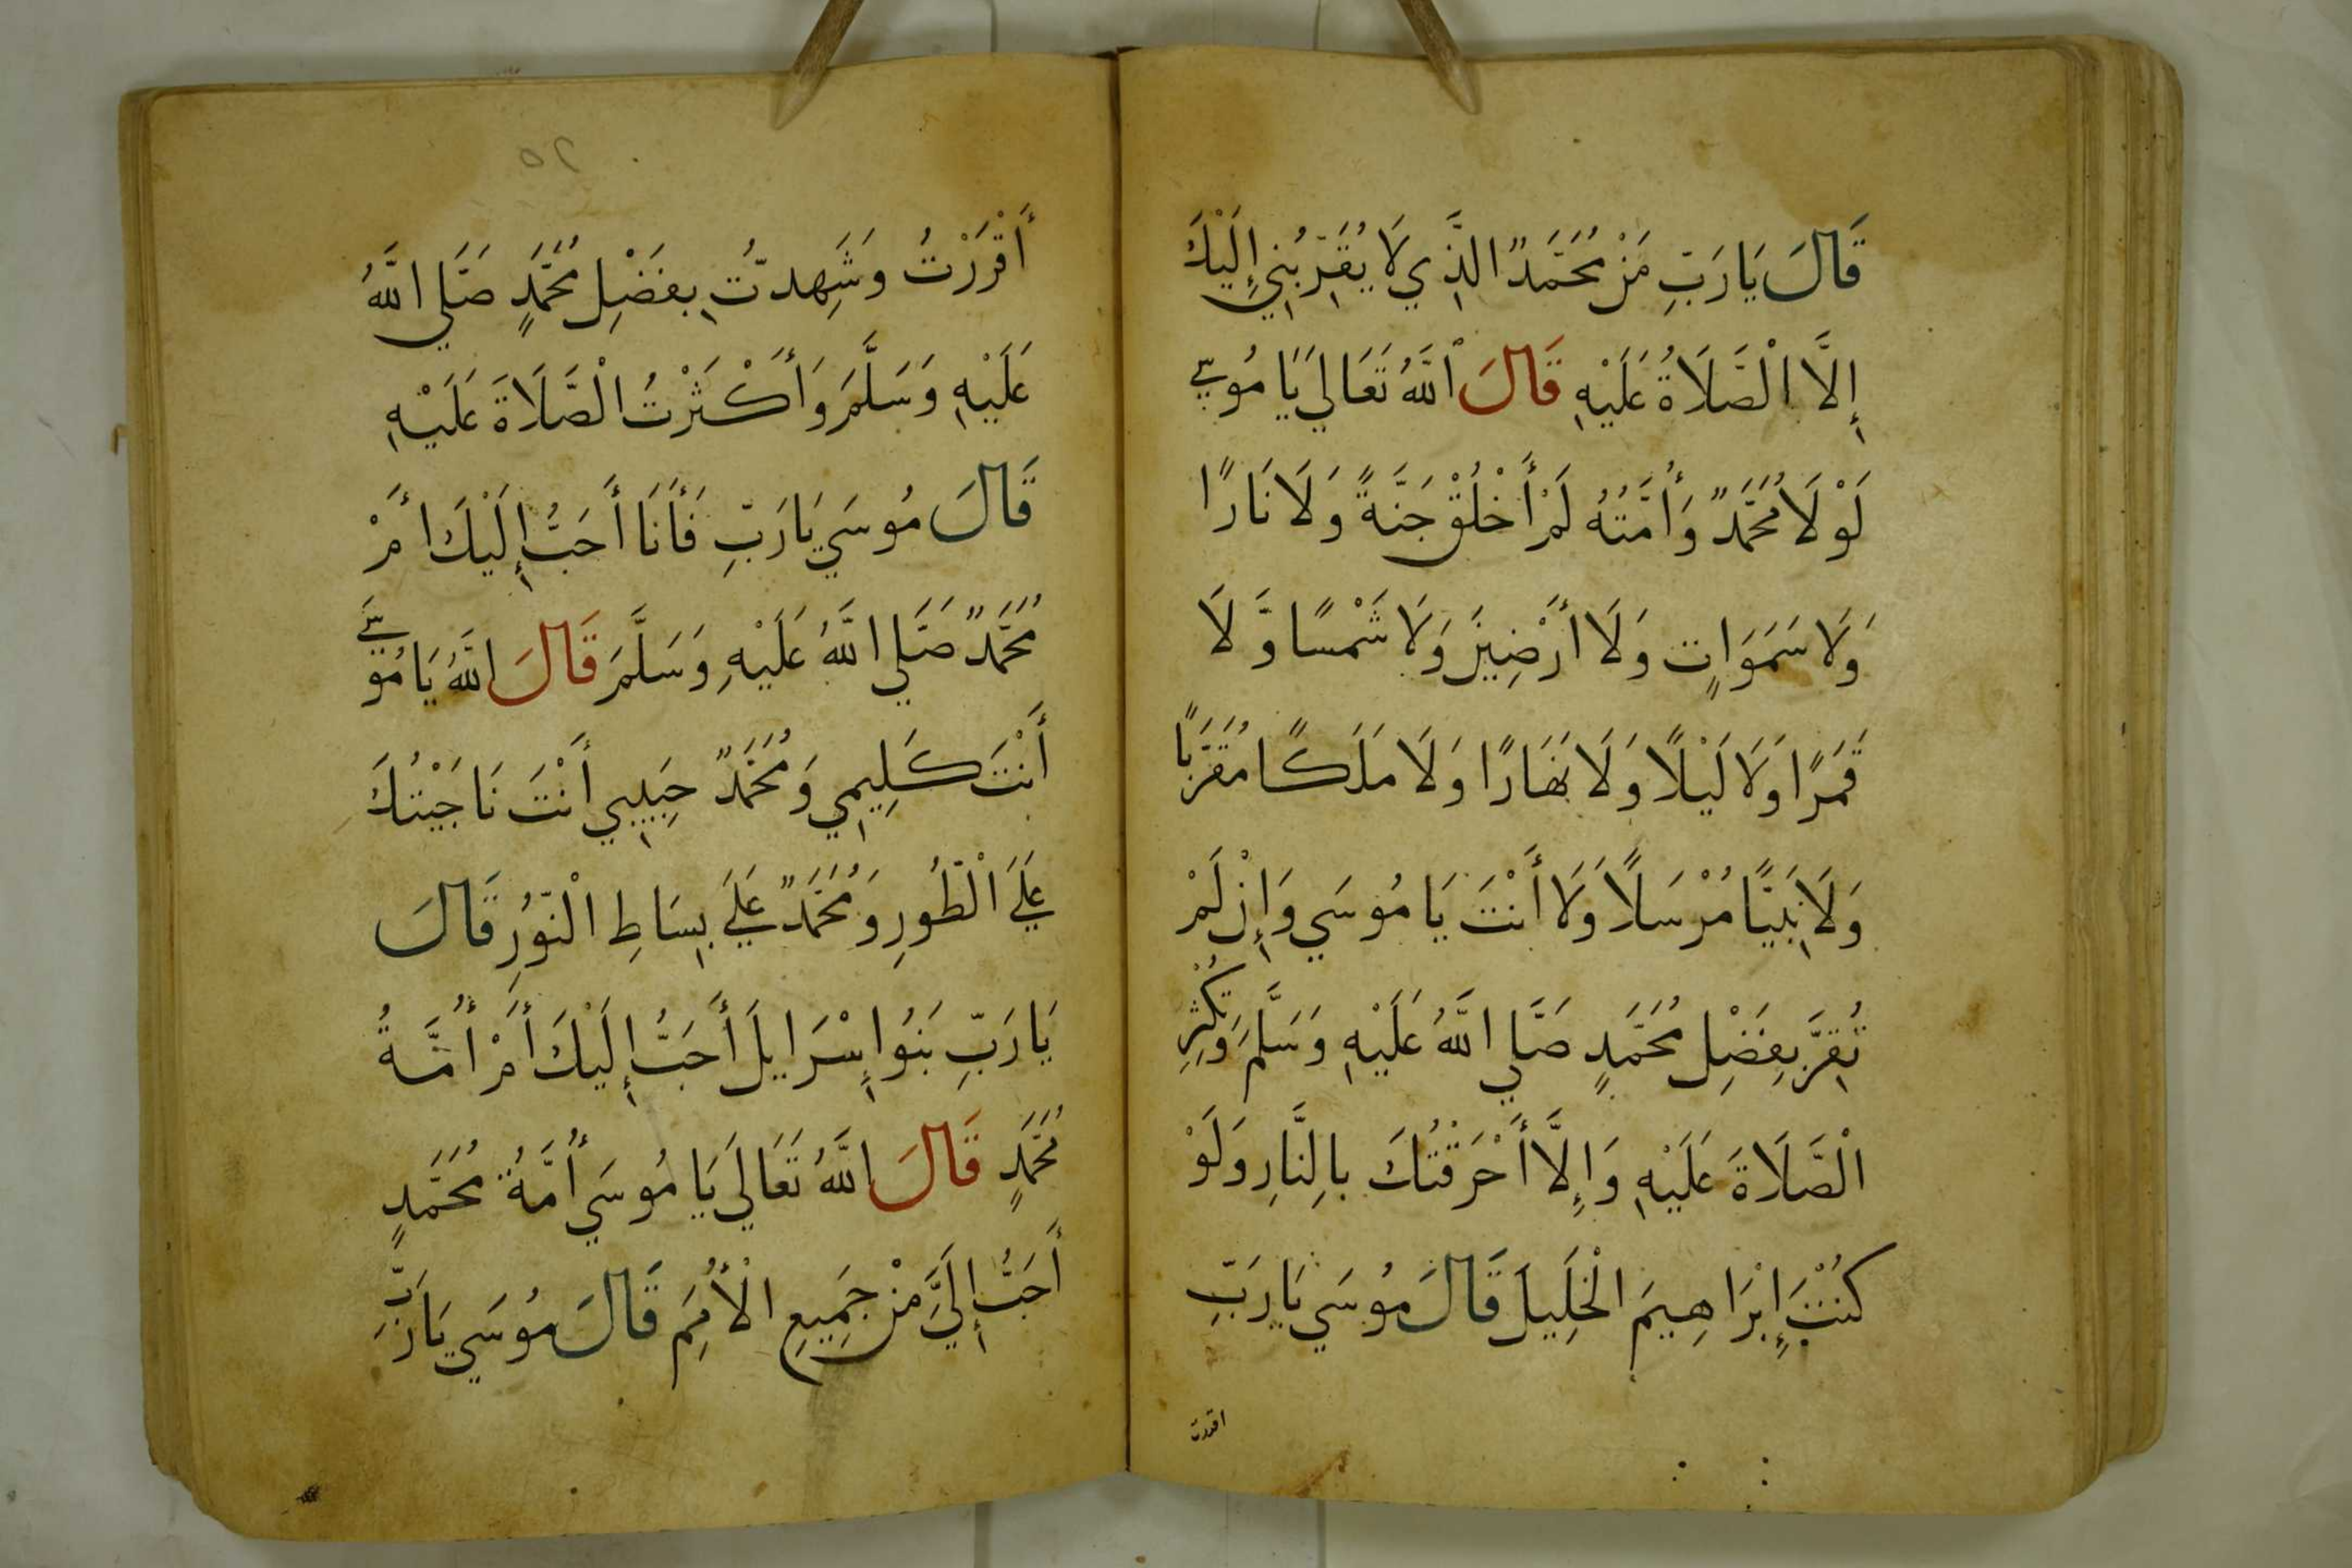 قَالَ يَا رَبِّ مَنْ مُحَمَّدٌ الَّذِي لَا يُقَرِّبُنِي إِلَيْكَ
إِلَّا الْصَّلَاةُ عَلَيْهِ قَالَ اللَّهُ تَعَالَي يَا مُوسَي
لَوْلَا مُحَمَّدٌ وَأُمَّتُهُ لَمْ أَخْلُقْ جَنَّةً وَلَا نَارًا
وَلَا سَمَوَاتٍ وَلَا أَرْضِينَ وَلَا شَمْسًا وَّلَا
قَمَرًا وَلَا لَيْلًا وَلَا نَهَارًا وَلَا مَلَكًا مُقَرَّبًا
وَلَا نَبِيًّا مُرْسَلًا وَلَا أَنْتَ يَا مُوسَي وَإِن لَمْ
تُقِرَّ بِفَضْلِ مُحَمَّدٍ صَلَّي اللَّهُ عَلَيْهِ وَسَلَّمَ وَتُكْثِرِ
الْصَّلَاةَ عَلَيْهِ وَإِلَّا أَحْرَقْتُكَ بِالنَّارِ وَلَوْ
كُنْتَ إِبْرَاهِيمَ الْخَلِيلَ قَالَ مُوسَي يَا رَبِّ
اقررت
٥٢
أَقْرَرْتُ وَشَهِدتُّ بِفَضْلِ مُحَمَّدٍ صَلَّي اللَّهُ
عَلَيْهِ وَسَلَّمَ وَأَكْثَرْتُ الْصَّلَاةَ عَلَيْهِ
قَالَ مُوسَي يَا رَبِّ فَأَنَا أَحَبُّ إِلَيْكَ أَمْ
مُحَمَّدٌ صَلَّي اللَّهُ عَلَيْهِ وَسَلَّمَ قَالَ اللَّهُ يَا مُوسَي
أَنْتَ كَلِيمِي وَمُحَمَّدٌ حَبِيبِي أَنْتَ نَاجَيْتُكَ
عَلَي الْطُّورِ وَمُحَمَّدٌ عَلَي بِسَاطِ الْنُّورِ قَالَ
يَا رَبِّ بَنُوا إِسْرَايلَ أَحَبُّ إِلَيْكَ أَمْ أُمَّةُ
مُحَمَّدٍ قَالَ اللَّهُ تَعَالَي يَا مُوسَي أُمَّةُ مُحَمَّدٍ
أَحَبُّ إِلَيَّ مِنْ جَمِيعِ الْأُمَمِ قَالَ مُوسَي يَا رَبِّ